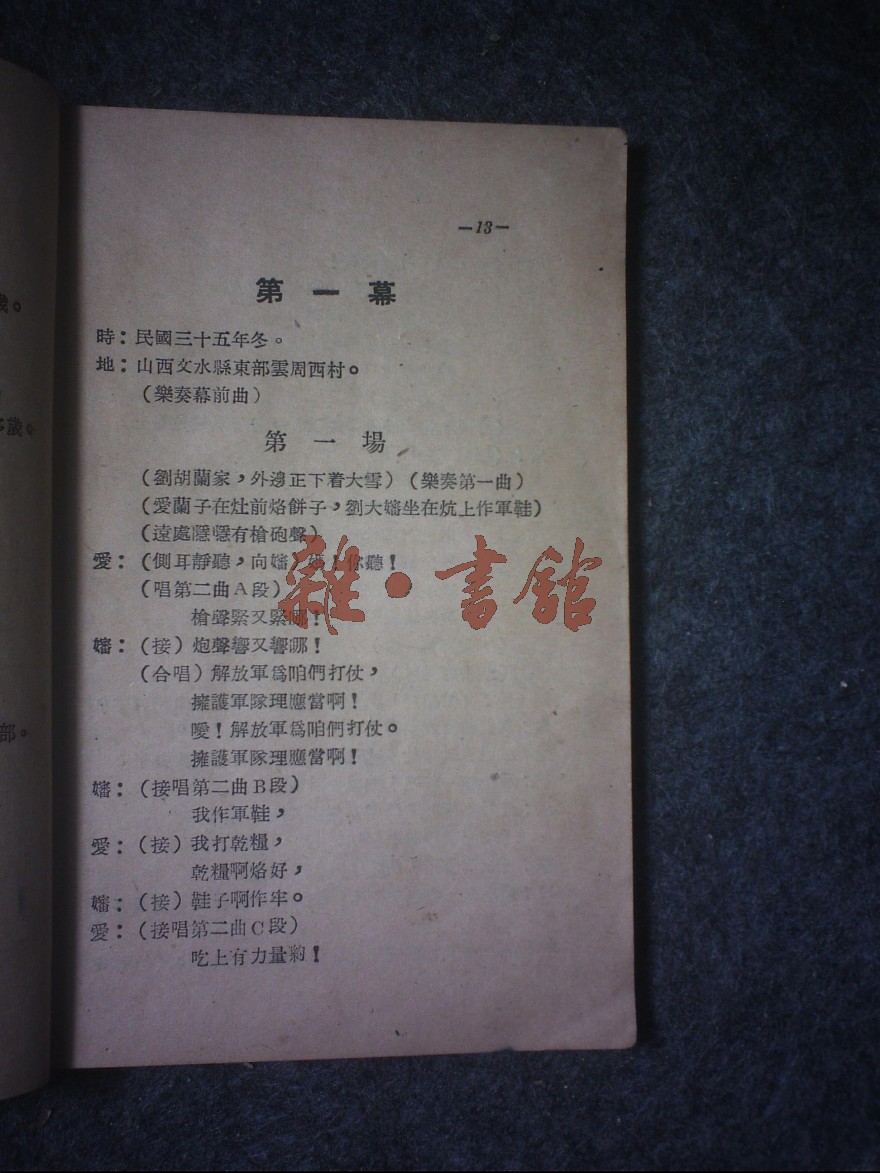 —13—
第一幕
時：民國三十五年冬。
地：山西文水縣東部雲周西村。
（樂奏幕前曲）
第一場
（劉胡蘭家，外邊正下着大雪）（樂奏第一曲）
（愛蘭子在灶前烙餅子，劉大嬸坐在炕上作軍鞋）
（遠處隱隱有槍砲聲）
愛：（側耳靜聽，向嬸）媽！你聽！
（唱第二曲A段）
槍聲緊又緊哪！
嬸：（接）炮聲響又響哪！
（合唱）解放軍爲咱們打仗，
擁護軍隊理應當啊！
噯！解放軍爲咱們打仗。
擁護軍隊理應當啊！
嬸：（接唱第二曲B段）
我作軍鞋，
愛：（接）我打乾糧，
乾糧啊烙好，
嬸：（接）鞋子啊作牢。
愛：（接唱第二曲C段）
吃上有力量喲！
雜·書館
歲。
歲。
部。